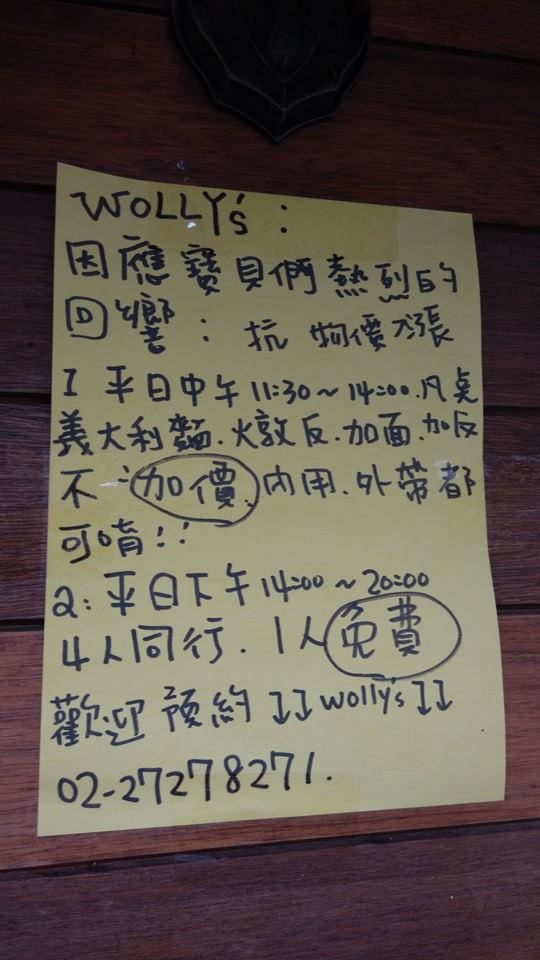 WOLLY's:
因應寶貝們熱烈的
回響: 抗 物價大張
1 平日中午11:30~14:00.凡点
義大利麵.火敦反.加面.加反
不加價.內用.外帶都
可唷!!
2:平日下午14:00~20:00
4人同行.1人免費
歡迎預約↓↓wolly's↓↓
02-27278271.